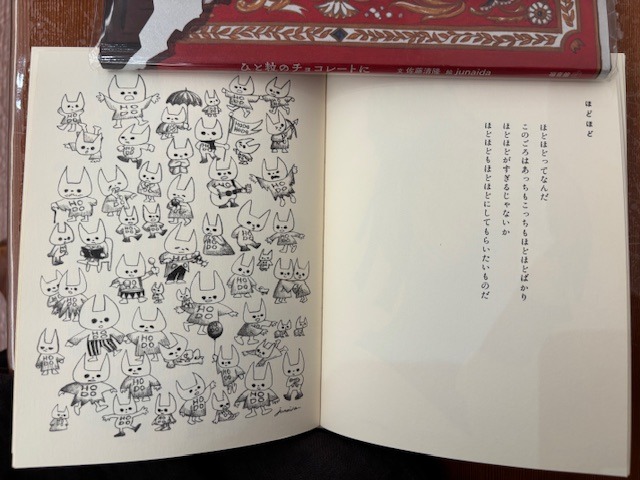 ひと粒のチョコレートに
文 佐藤清隆 絵 junaida
福音館
ほどほど
ほどほどってなんだ
このごろはあっちもこっちもほどほどばかり
ほどほどがすぎるじゃないか
ほどほどもほどほどにしてもらいたいものだ
HODO HODO
HO DO
junaida